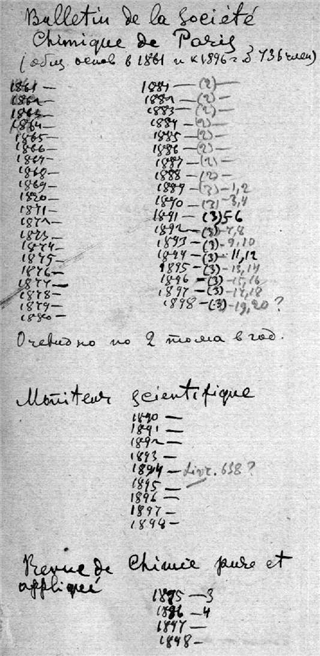 Bulletin de la Société
Chimique de Paris
1861 —
1862 —
1863 —
1864 —
1865 —
1866 —
1867 —
1868 —
1869 —
1870 —
1871 —
1873 —
1874 —
1875 —
1876 —
1877 —
1878 —
1879 —
1880 —
1881 — (2) —
1882 — (2) —
1883 — (2) —
1884 — (2) —
1885 — (2) —
1886 — (2) —
1887 — (2) —
1888 — (2) —
1889 — (3) — 1,2
1890 — (3) — 3,4
1891 — (3) 5 6
1892 — (3) — 7,8
1893 — (3) — 9,10
1894 — (3) — 11,12
1895 — (3) — 13,14
1896 — (3) — 15,16
1897 — (3) — 17,18
1898 — (3) — 19,20 ?
Очевидно по 2 тома в год.
Moniteur scientifique
1890 —
1891 —
1892 —
1893 —
1894 — Livr. 638 ?
1895 —
1896 —
1897 —
1898 —
Revue de Chimie pure et
appliquée
1895 — 3
1896 — 4
1897 —
1898 —